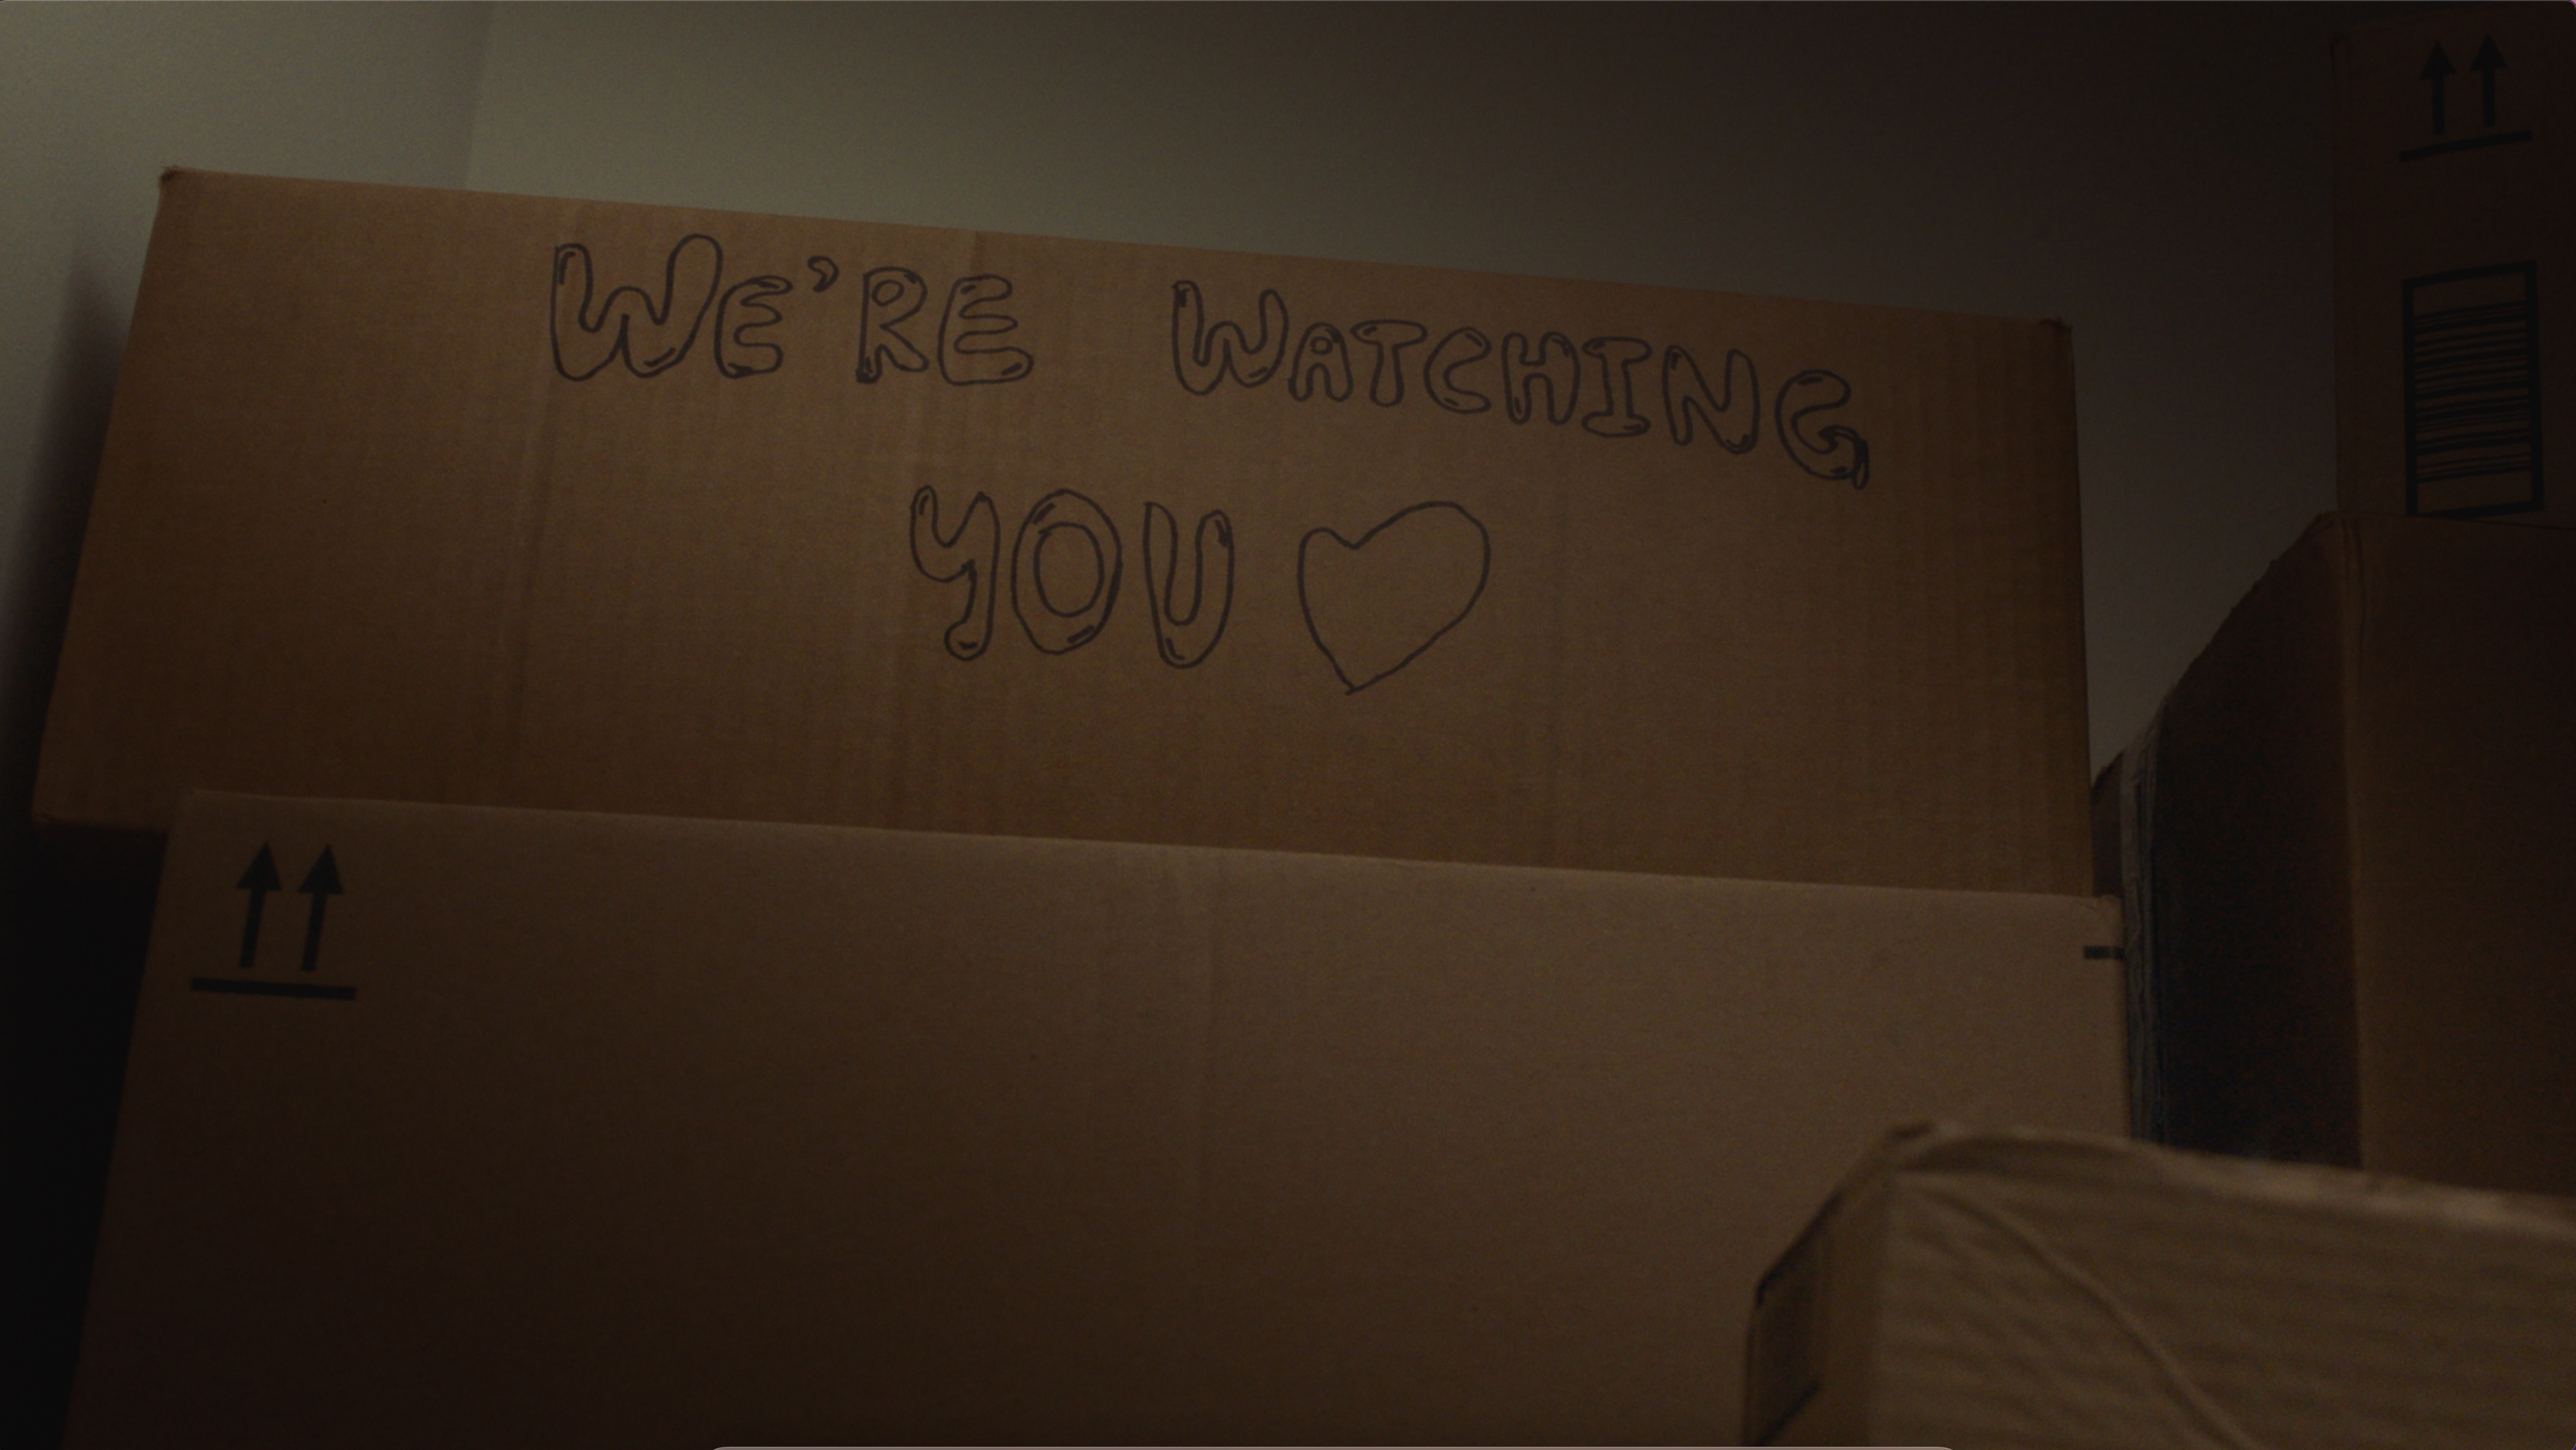 WE'RE WATCHING
YOU ♡